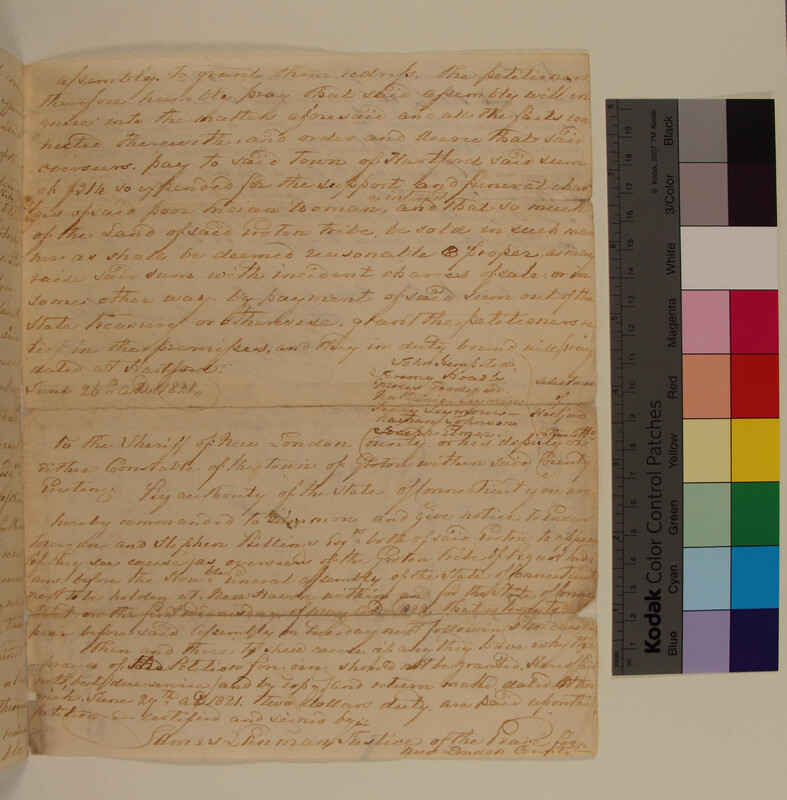 assembly. to grant them redress. the petitioners
therefore humbly pray that said assembly will en
quire into the matters aforesaid and all the facts con
nected therewith, and order and decree that said
overseers. pay to said town of Hartford said sum
of $314. so expended for the support and funeral char
ges of said poor Indian Woman, and that so much
of the Land of said Groton tribe, be sold in such man
ner as shall be deemed reasonable & proper, as may
raise said sum with incident charges of sale. or in
some other way. by payment of said sum out of the
State treasury or otherwise, grant the petitioners re
lief in the premises, and they in duty bound will pray
dated at Hartford.
June 26th AD. 1821.
Jeremy Hoadly
Nathaniel Seymour
Henry Seymour
Nathan Johnson
Joseph
Selectmen
of
Hartford
To the Sheriff of New London County or his deputy or
either Constable of the town of Groton within said County
Greeting. By authority of the State of Connecticut you are
hereby commanded to summon and give notice to
and Stephen Billings Esqr. both of said Groton to appear
if they see cause as overseers of the Groton tribe of Pequot Indi
ans, before the Honl. General assembly of the State of Connecticut
next to be holden at New Haven within and for the State of Connec
ticut on the first Wednesday of May AD. 1822. that is to
pear before said assembly on tuesday next following
then and there to shew cause if any they have why the
prayer of the Petition foregoing should not be granted. Hereof fail
not, but due service (and by copy) and return make, dated at Nor
wich June 27th AD. 1821. two dollars duty are paid upon this
petition - certified and signed by
James Lanman Justice of the Peace for
New London County
Kodak Color Control Patches
© Kodak, 2007 TM: Kodak
Blue
Cyan
Green
Yellow
Red
Magenta
White
3/Color
Black